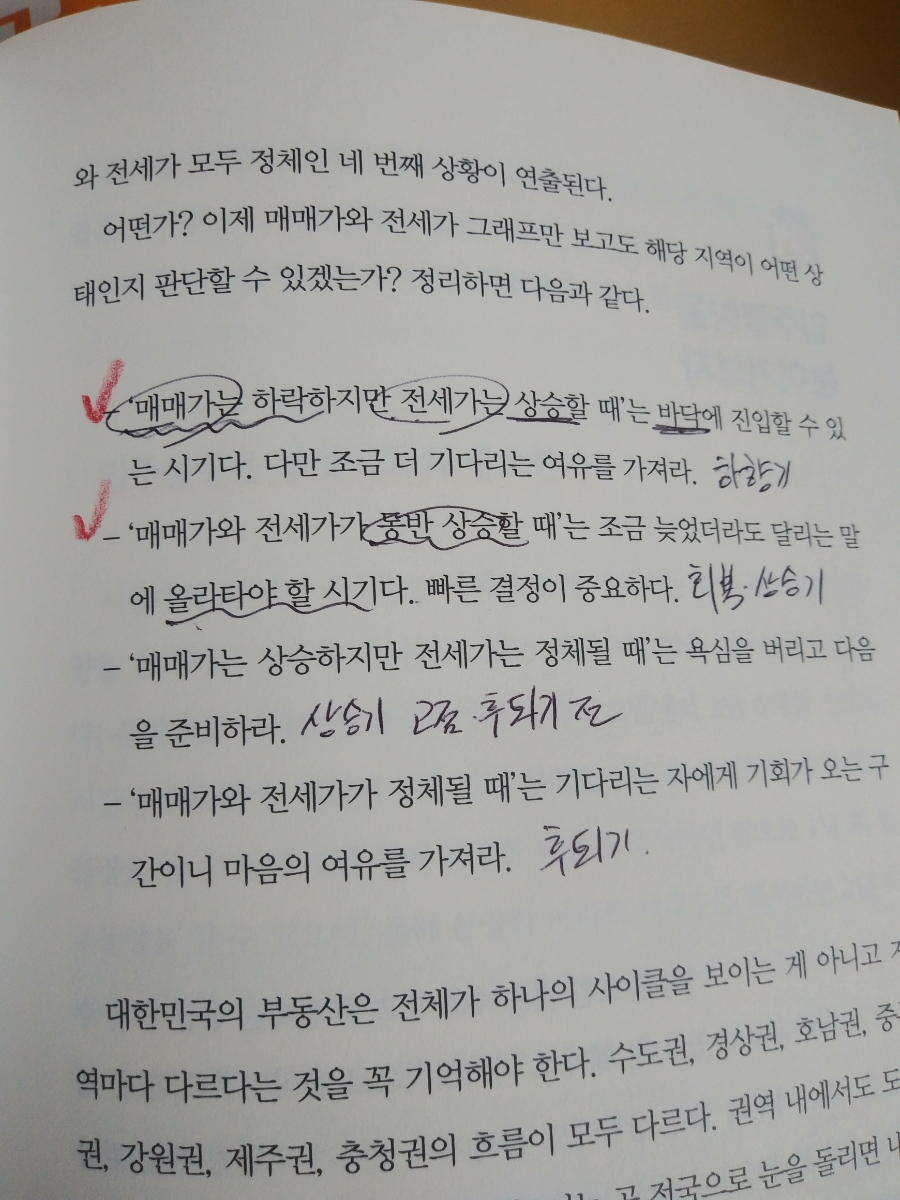 와 전세가 모두 정체인 네 번째 상황이 연출된다.
어떤가? 이제 매매가와 전세가 그래프만 보고도 해당 지역이 어떤 상
태인지 판단할 수 있겠는가? 정리하면 다음과 같다.
– ‘매매가는 하락하지만 전세가는 상승할 때’는 바닥에 진입할 수 있
는 시기다. 다만 조금 더 기다리는 여유를 가져라. 하향기
– ‘매매가와 전세가가 동반 상승할 때’는 조금 늦었더라도 달리는 말
에 올라타야 할 시기다. 빠른 결정이 중요하다. 회복·상승기
– ‘매매가는 상승하지만 전세가는 정체될 때’는 욕심을 버리고 다음
을 준비하라. 상승기 고점·후퇴기 전
– ‘매매가와 전세가가 정체될 때’는 기다리는 자에게 기회가 오는 구
간이니 마음의 여유를 가져라. 후퇴기.
대한민국의 부동산은 전체가 하나의 사이클을 보이는 게 아니고
역마다 다르다는 것을 꼭 기억해야 한다. 수도권, 경상권, 호남권,
권, 강원권, 제주권, 충청권의 흐름이 모두 다르다. 권역 내에서도
전국으로 눈을 돌리면